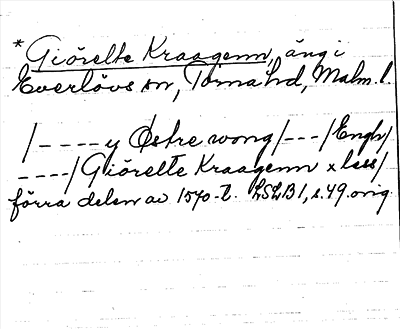 * Giörelte Kraagenn, äng i
Everlövs sn, Torna hd, Malm. l.
/ - - - - y Østre wong / - - - / Engh /
- - - - / Giörelte Kraagenn x lass /
förra delen av 1570-t. LSLB 1, s. 49. orig.